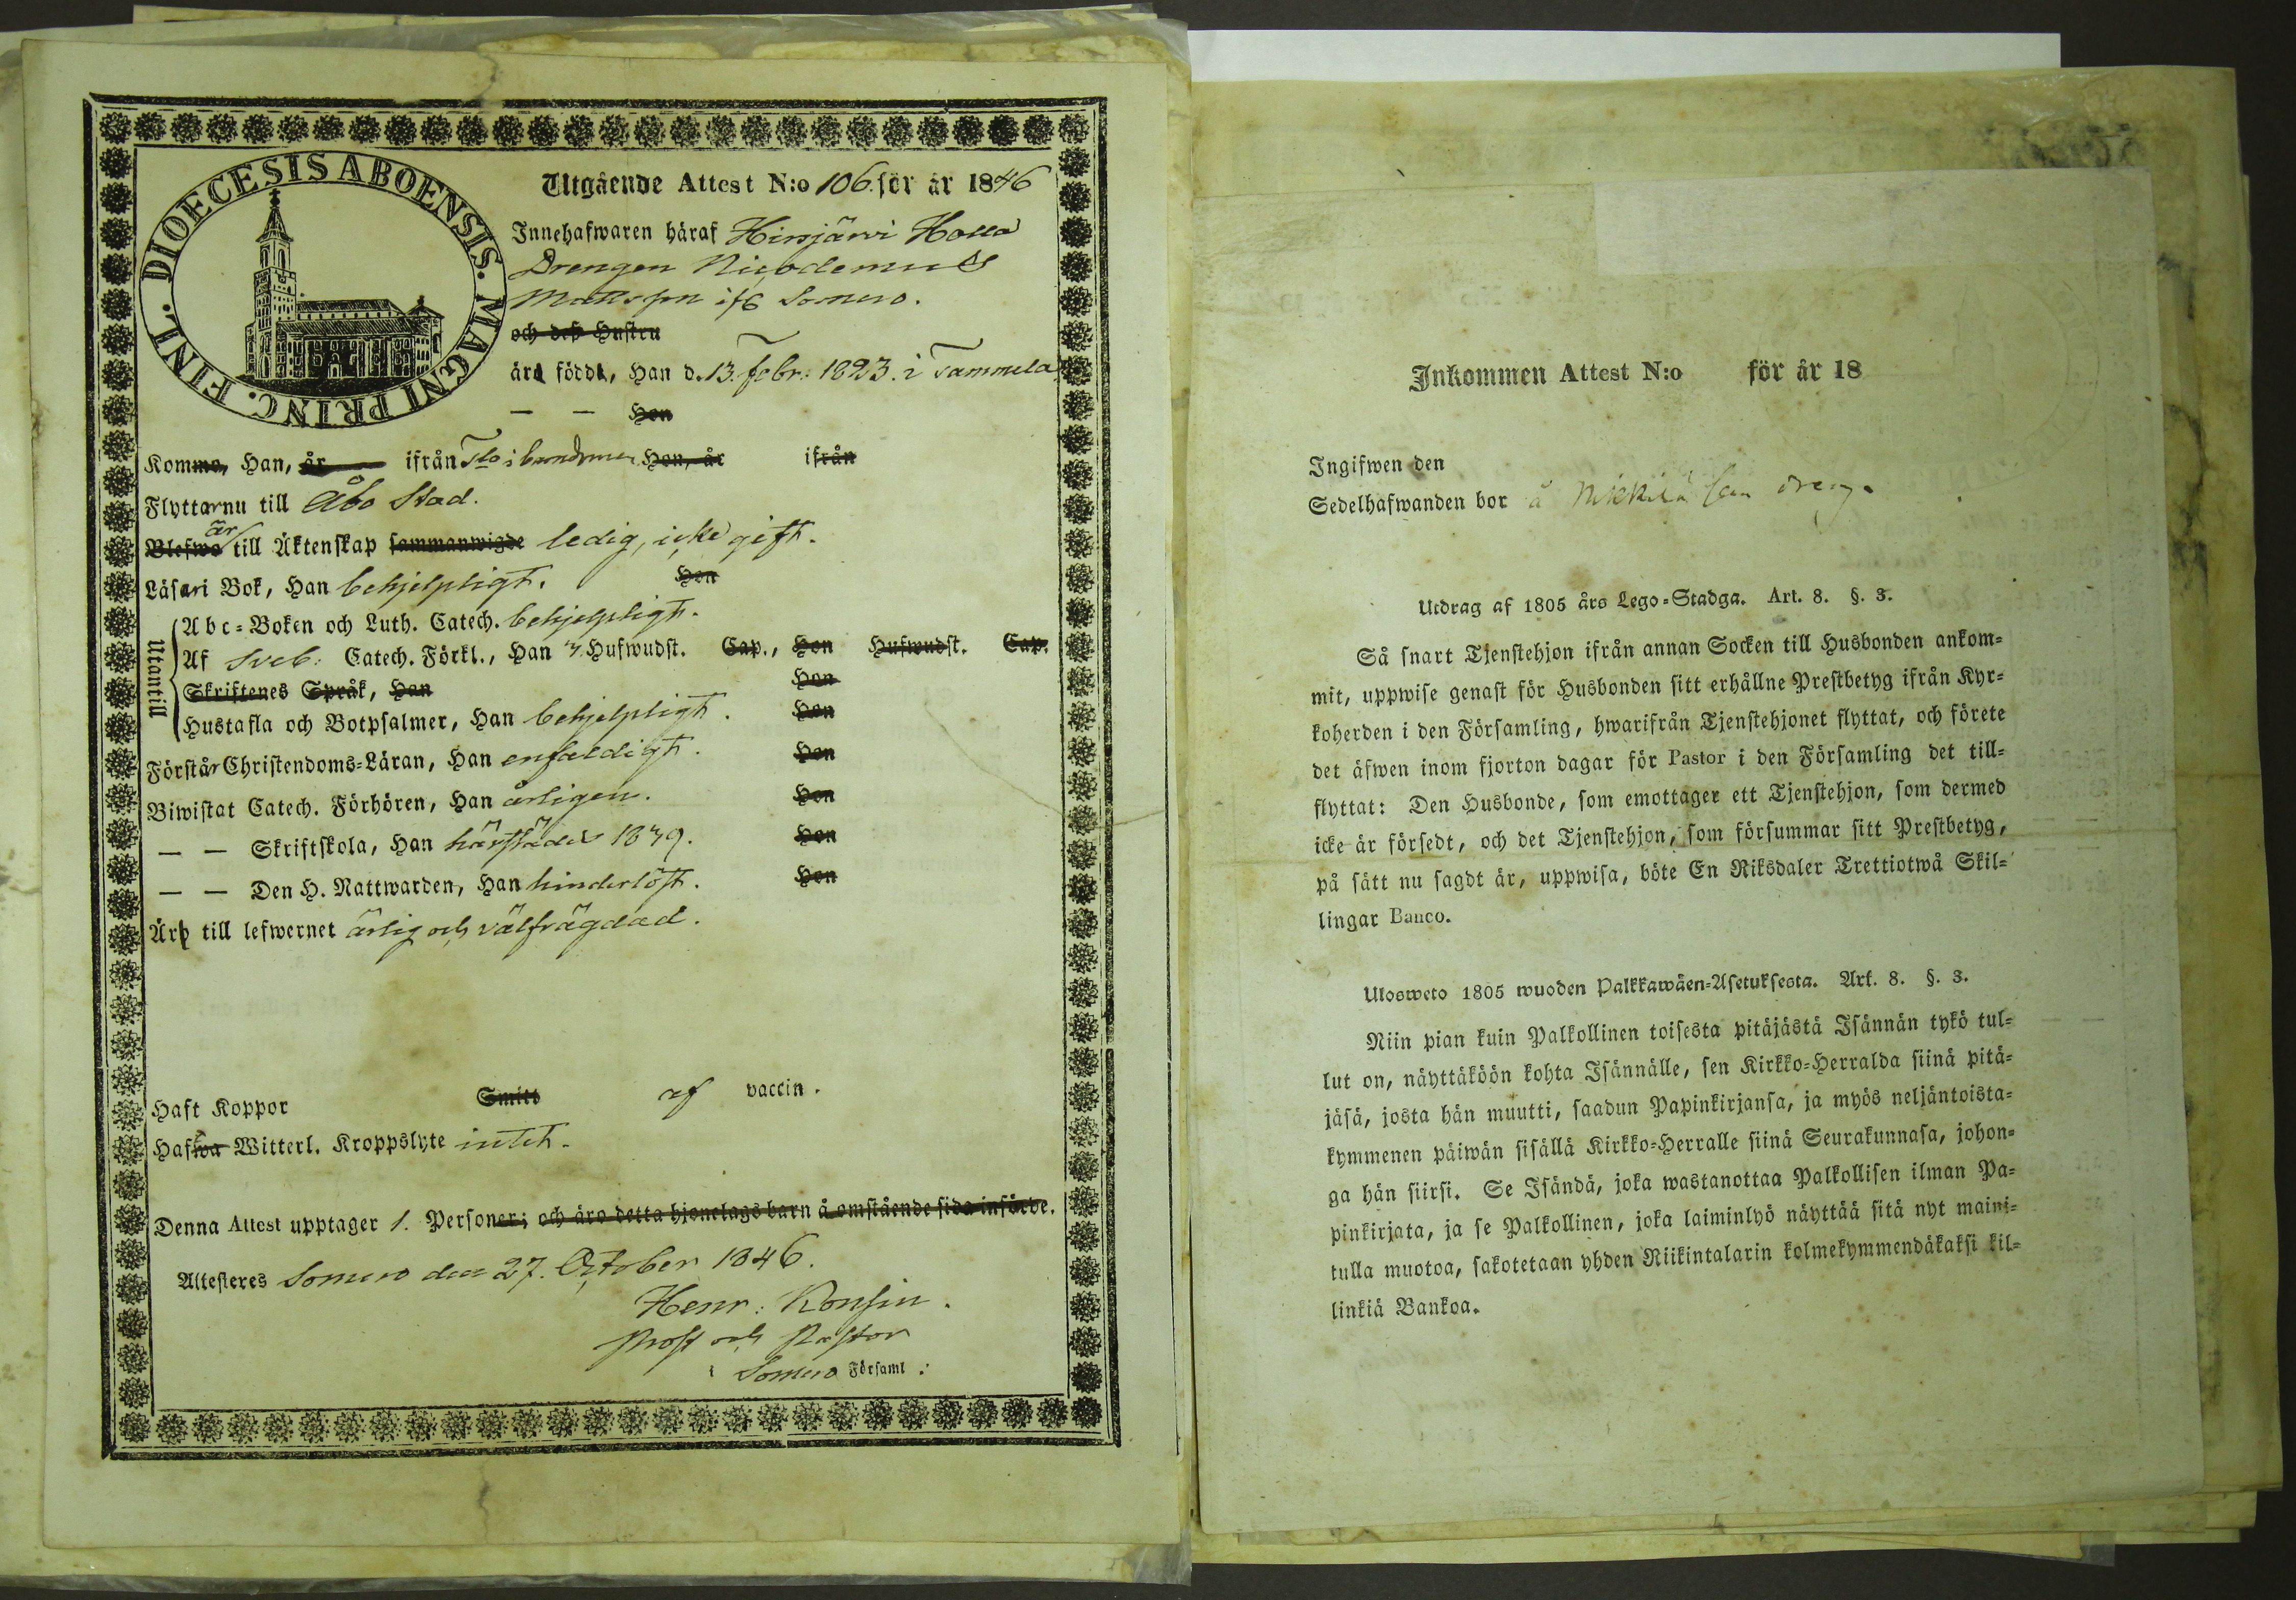 DIOECESIS ABOENSIS. MAGNI PRINC. FINL.
Utgående Attest N:o 106. för år 1846
Innehafwaren häraf Hirsjärvi Holla
Drengen Nicodemus
Matts son ifs Somero.
och dess Hustru
äro född, Han d. 13. Febr: 1823. i Tammela
— — Hon
Komme, Han, år — ifrån Hon, år ifrån
Flyttar nu till Åbo Stad.
Blefwo är till Äktenskap sammanwigde ledig, icke gift.
Läsari Bok, Han behjelpligt. Hon
Utantill
Abc-Boken och Luth. Catech. behjelpligt.
Af Sveb: Catech. Förkl., Han 3 Hufwudst. Cap., Hon Hufwudst. Cap.
Skriftenes Språk, Han Hon
Hustafla och Botpsalmer, Han behjelpligt. Hon
Förstår Christendoms-Läran, Han enfaldigt. Hon
Biwistat Catech. Förhören, Han årligen. Hon
— — Skriftskola, Han härstädes 1839. Hon
— — Den H. Nattwarden, Han hinderlöst. Hon
Äro till lefwernet ärlig och välfrägdad.
Haft Koppor Smitt af vaccin.
Hafwa Witterl. Kroppslyte intet.
Denna Attest upptager 1. Personer; och äro detta hjonelags barn å omstående sida införde.
Attesteres Somero den 27. October 1846.
Henr: Konsin.
Prost och Pastor
i Somero Församl:
Inkommen Attest N:o för år 18
Ingifwen den
Sedelhafwanden bor å Nikkilä som dreng.
Utdrag af 1805 års Lego-Stadga. Art. 8. §. 3.
Så snart Tjenstehjon ifrån annan Socken till Husbonden ankom-
mit, uppwise genast för Husbonden sitt erhållne Prestbetyg ifrån Kyr-
koherden i den Församling, hwarifrån Tjenstehjonet flyttat, och förete
det äfwen inom fjorton dagar för Pastor i den Församling det till-
flyttat: Den Husbonde, som emottager ett Tjenstehjon, som dermed
icke är försedt, och det Tjenstehjon, som försummar sitt Prestbetyg,
på sätt nu sagdt är, uppwisa, böte En Riksdaler Trettiotwå Skil-
lingar Banco.
Ulosweto 1805 wuoden Palkkawäen-Asetuksesta. Art. 8. §. 3.
Niin pian kuin Palkollinen toisesta pitäjästä Isännän tykö tul-
lut on, näyttäköön kohta Isännälle, sen Kirkko-Herralda siinä pitä-
jäsä, josta hän muutti, saadun Papinkirjansa, ja myös neljäntoista-
kymmenen päiwän sisällä Kirkko-Herralle siinä Seurakunnasa, johon-
ga hän siirsi. Se Isändä, joka wastanottaa Palkollisen ilman Pa-
pinkirjata, ja se Palkollinen, joka laiminlyö näyttää sitä nyt maini-
tulla muotoa, sakotetaan yhden Riikintalarin kolmekymmendäkaksi kil-
linkiä Bankoa.